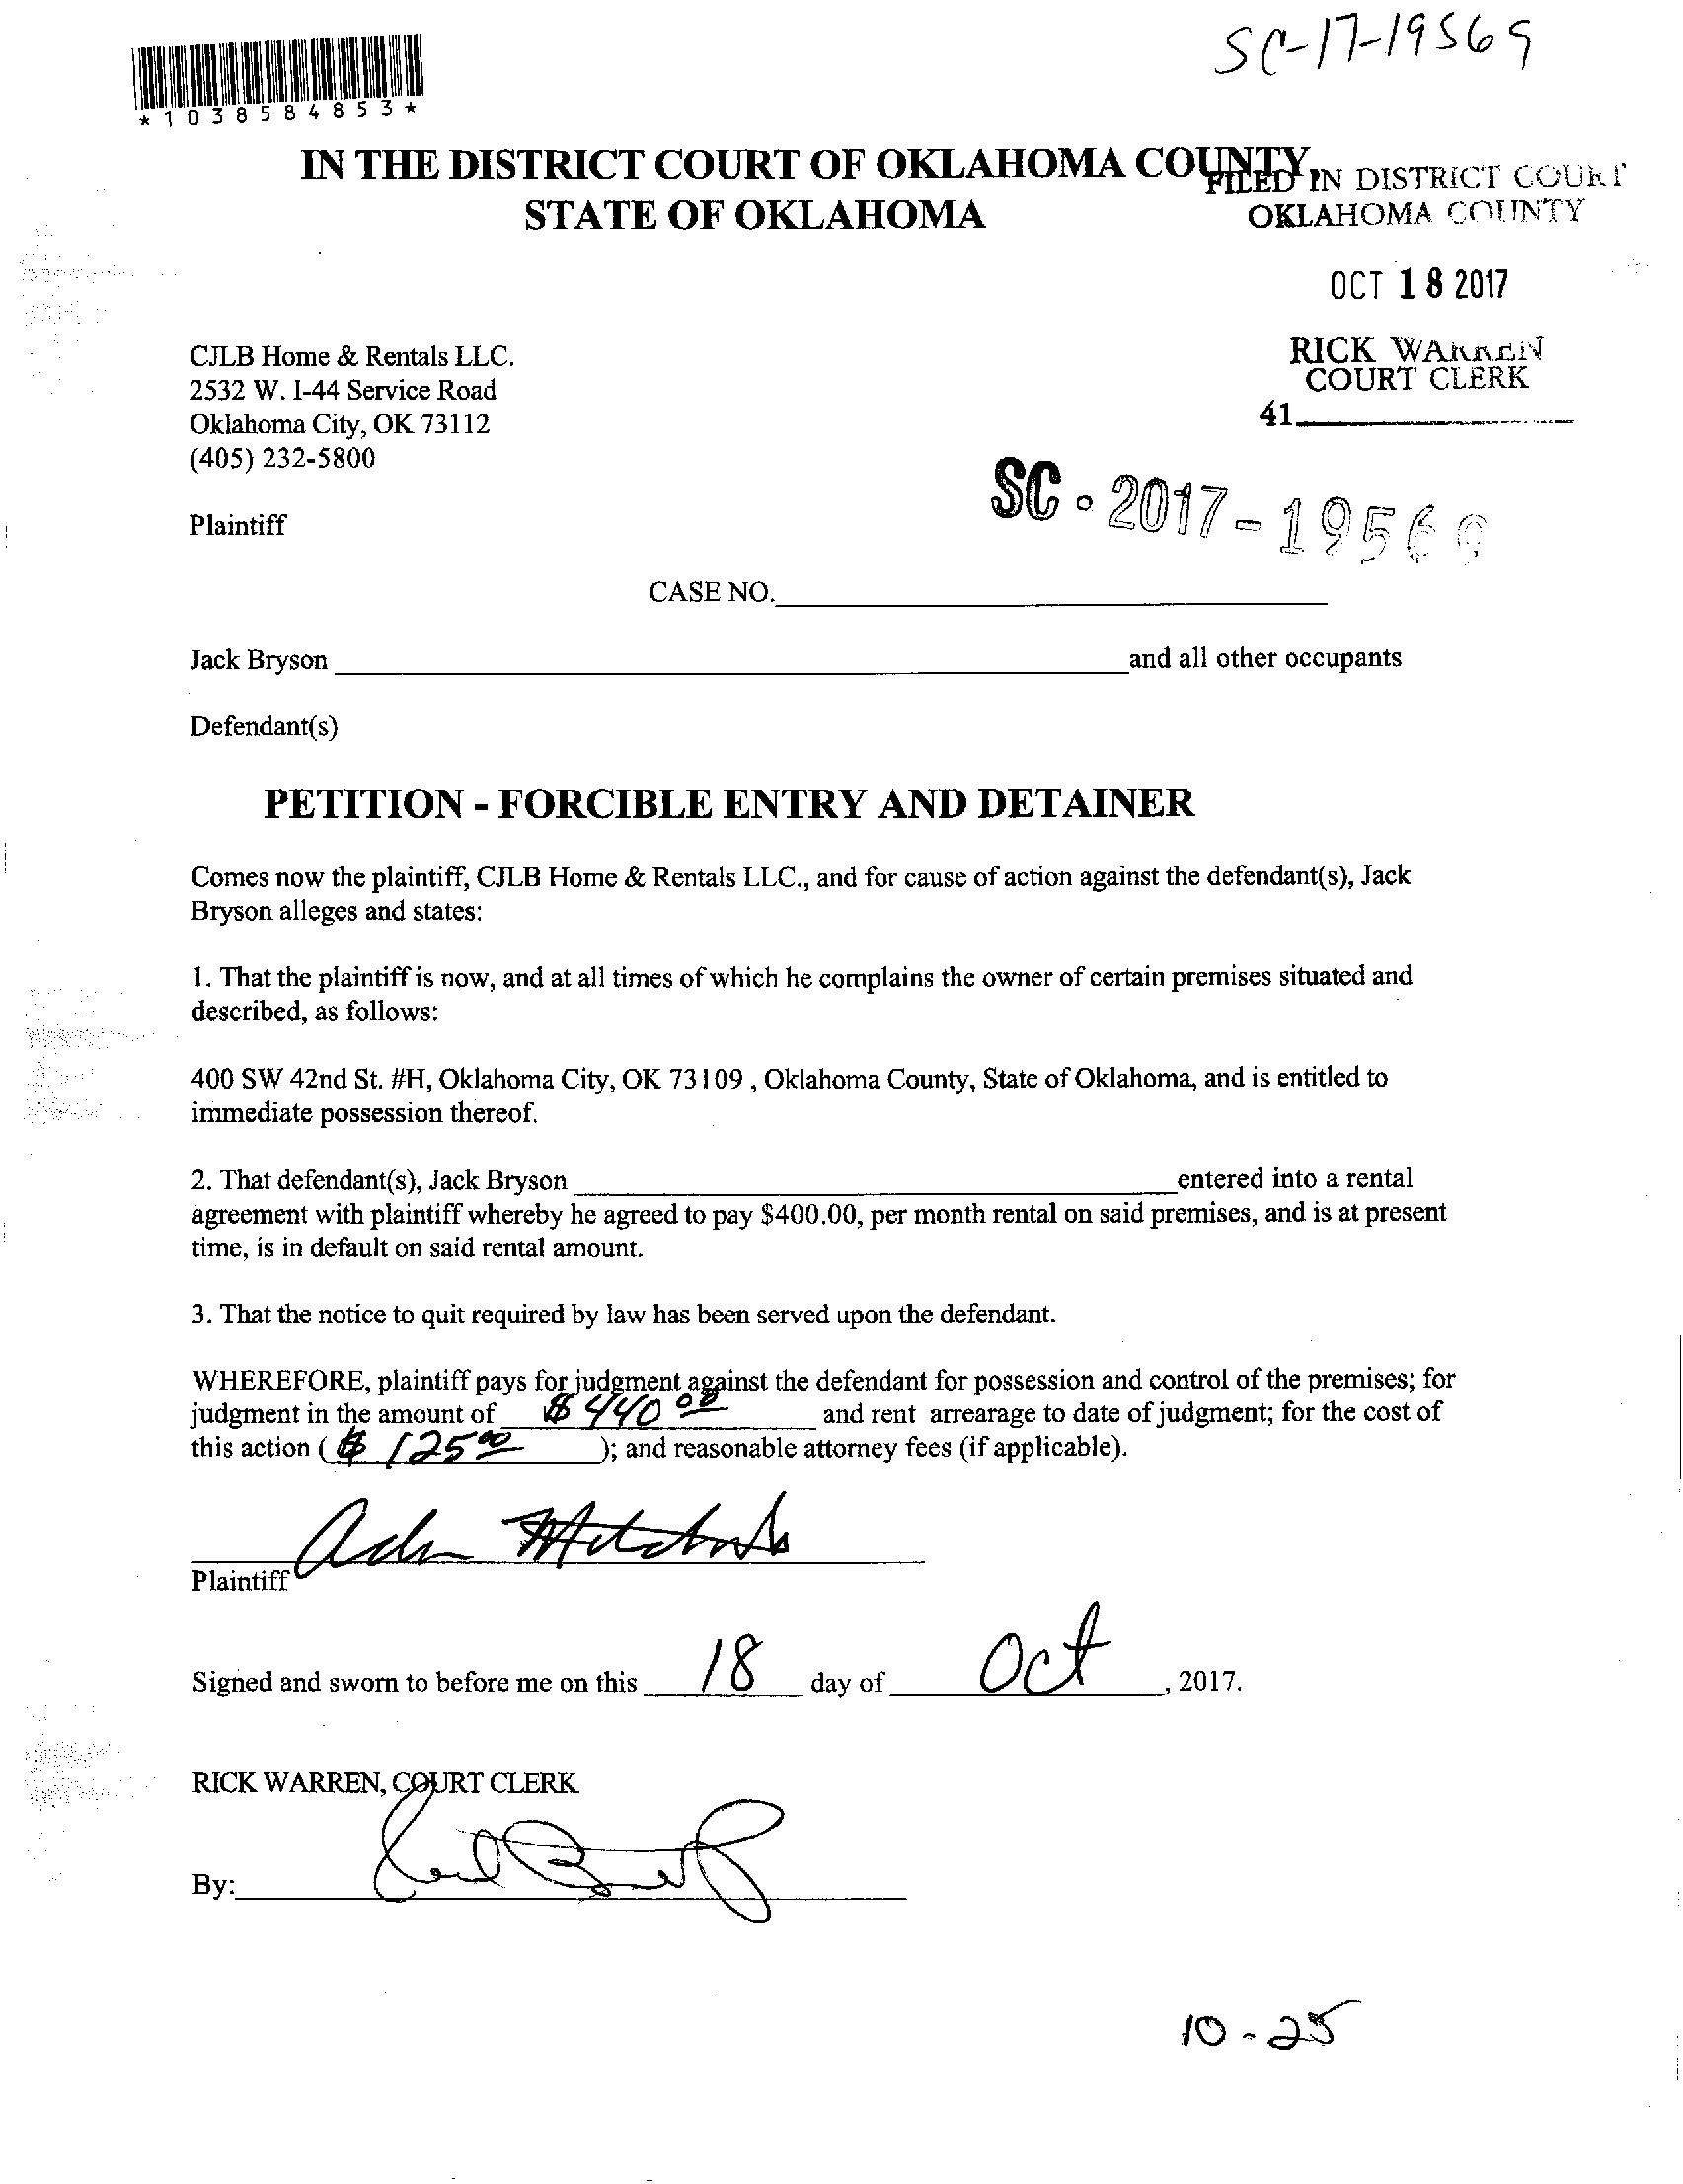 SC-17-19569
*1038584853*
IN THE DISTRICT COURT OF OKLAHOMA COUNTY
STATE OF OKLAHOMA
FILED IN DISTRICT COURT
OKLAHOMA COUNTY
OCT 18 2017
RICK WARREN
COURT CLERK
41
CJLB Home & Rentals LLC.
2532 W. I-44 Service Road
Oklahoma City, OK 73112
(405) 232-5800
Plaintiff
SC - 2017-19569
CASE NO.
Jack Bryson and all other occupants
Defendant(s)
PETITION - FORCIBLE ENTRY AND DETAINER
Comes now the plaintiff, CJLB Home & Rentals LLC., and for cause of action against the defendant(s), Jack
Bryson alleges and states:
1. That the plaintiff is now, and at all times of which he complains the owner of certain premises situated and
described, as follows:
400 SW 42nd St. #H, Oklahoma City, OK 73109 , Oklahoma County, State of Oklahoma, and is entitled to
immediate possession thereof.
2. That defendant(s), Jack Bryson entered into a rental
agreement with plaintiff whereby he agreed to pay $400.00, per month rental on said premises, and is at present
time, is in default on said rental amount.
3. That the notice to quit required by law has been served upon the defendant.
WHEREFORE, plaintiff pays for judgment against the defendant for possession and control of the premises; for
judgment in the amount of $440 00 and rent arrearage to date of judgment; for the cost of
this action ( $125 00 ); and reasonable attorney fees (if applicable).
Plaintiff
Signed and sworn to before me on this 18 day of Oct , 2017.
RICK WARREN, COURT CLERK
By:
10-25